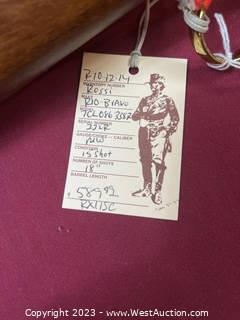 R10-12-14
INVENTORY NUMBER
ROSSI
MAKE
RIO-BRAVO
SERIAL NUMBER
GAUGE/CORES — CALIBER
NEW
CONDITION
15 Shot
NUMBER OF SHOTS
18"
BARREL LENGTH
$ 589.92
RX115C
© 2023 - www.WestAuction.com